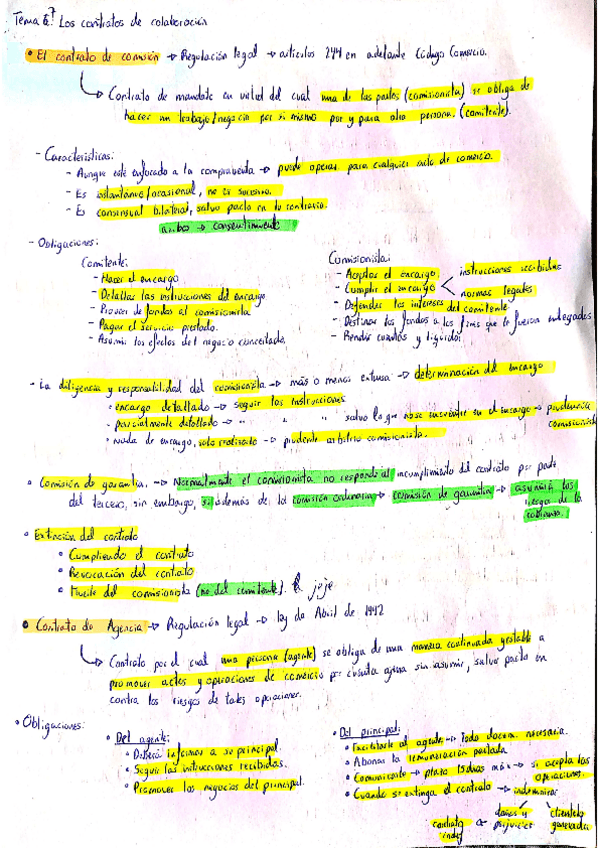 Tema 6: Los contratos de colaboración
• El contrato de comisión → Regulación legal → artículos 244 en adelante Código Comercio.
↳ Contrato de mandato en virtud del cual una de las partes (comisionista) se obliga de
hacer un trabajo/negocio por si mismo por y para otra persona. (comitente).
- Características:
- Aunque esté enfocado a la compraventa → puede operar para cualquier acto de comercio.
- Es instantáneo/ocasional, no es sucesivo.
- Es consensual bilateral, salvo pacto en lo contrario.
ambos → consentimiento
- Obligaciones:
Comitente:
- Hacer el encargo
- Detallar las instrucciones del encargo
- Proveer de fondos al comisionista
- Pagar el servicio prestado.
- Asumir los efectos del negocio concertado.
Comisionista:
- Aceptar el encargo
- Cumplir el encargo < instrucciones recibidas
normas legales
- Defender los intereses del comitente
- Destinar los fondos a los fines que le fueron entregados
- Rendir cuentas y liquidar
- La diligencia y responsabilidad del comisionista → más o menos extensa → determinación del encargo
• encargo detallado → seguir las instrucciones
• parcialmente detallado → " " " salvo lo que no se encuentre en el encargo → prudencia
comisionista
• nada de encargo, solo realizado → prudente arbitrio comisionista.
• Comisión de garantía. → Normalmente el comisionista no responde al incumplimiento del contrato por parte
del tercero, sin embargo, si además de la comisión ordinaria → comisión de garantía → asumirá los
riesgos de la
cobranza.
• Extinción del contrato
• Cumpliendo el contrato
• Revocación del contrato
• Muerte del comisionista (no del comitente).
• Contrato de Agencia → Regulación legal → ley de Abril de 1992
↳ Contrato por el cual una persona (agente) se obliga de una manera continuada y estable a
promover actos y operaciones de comercio por cuenta ajena sin asumir, salvo pacto en
contra los riesgos de tales operaciones.
• Obligaciones:
• Del agente:
• Deberá informar a su principal.
• Seguir las instrucciones recibidas.
• Promover los negocios del principal.
• Del principal:
• Facilitarle al agente → toda docum. necesaria.
• Abonar la remuneración pactada
• Comunicarle → plazo 15 días máx → si acepta las
operaciones.
• Cuando se extinga el contrato → indemnizar
daños y
perjuicios
clientela
generada
contrato
indef